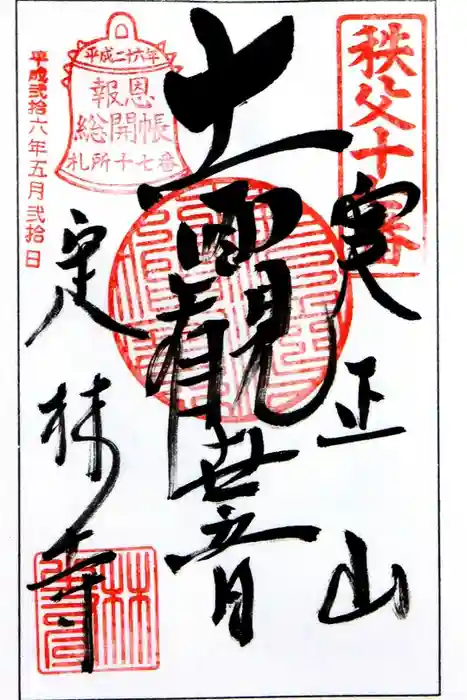 秩父十七番
実正山
十一面観世音
平成二六年
報恩
総開帳
札所十七番
定林寺
平成弐拾六年五月弐拾日